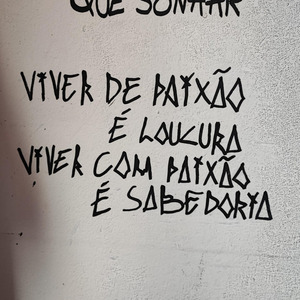 QUE SONHAR
VIVER DE PAIXÃO
É LOUCURA
VIVER COM PAIXÃO
É SABEDORIA